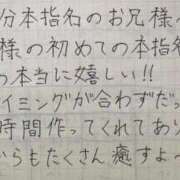 分本指名のお兄様へ
様の初めての本指名
の本当に嬉しい!!
イミングが合わずだっ
時間作ってくれてあり
からもたくさん癒すよ〜